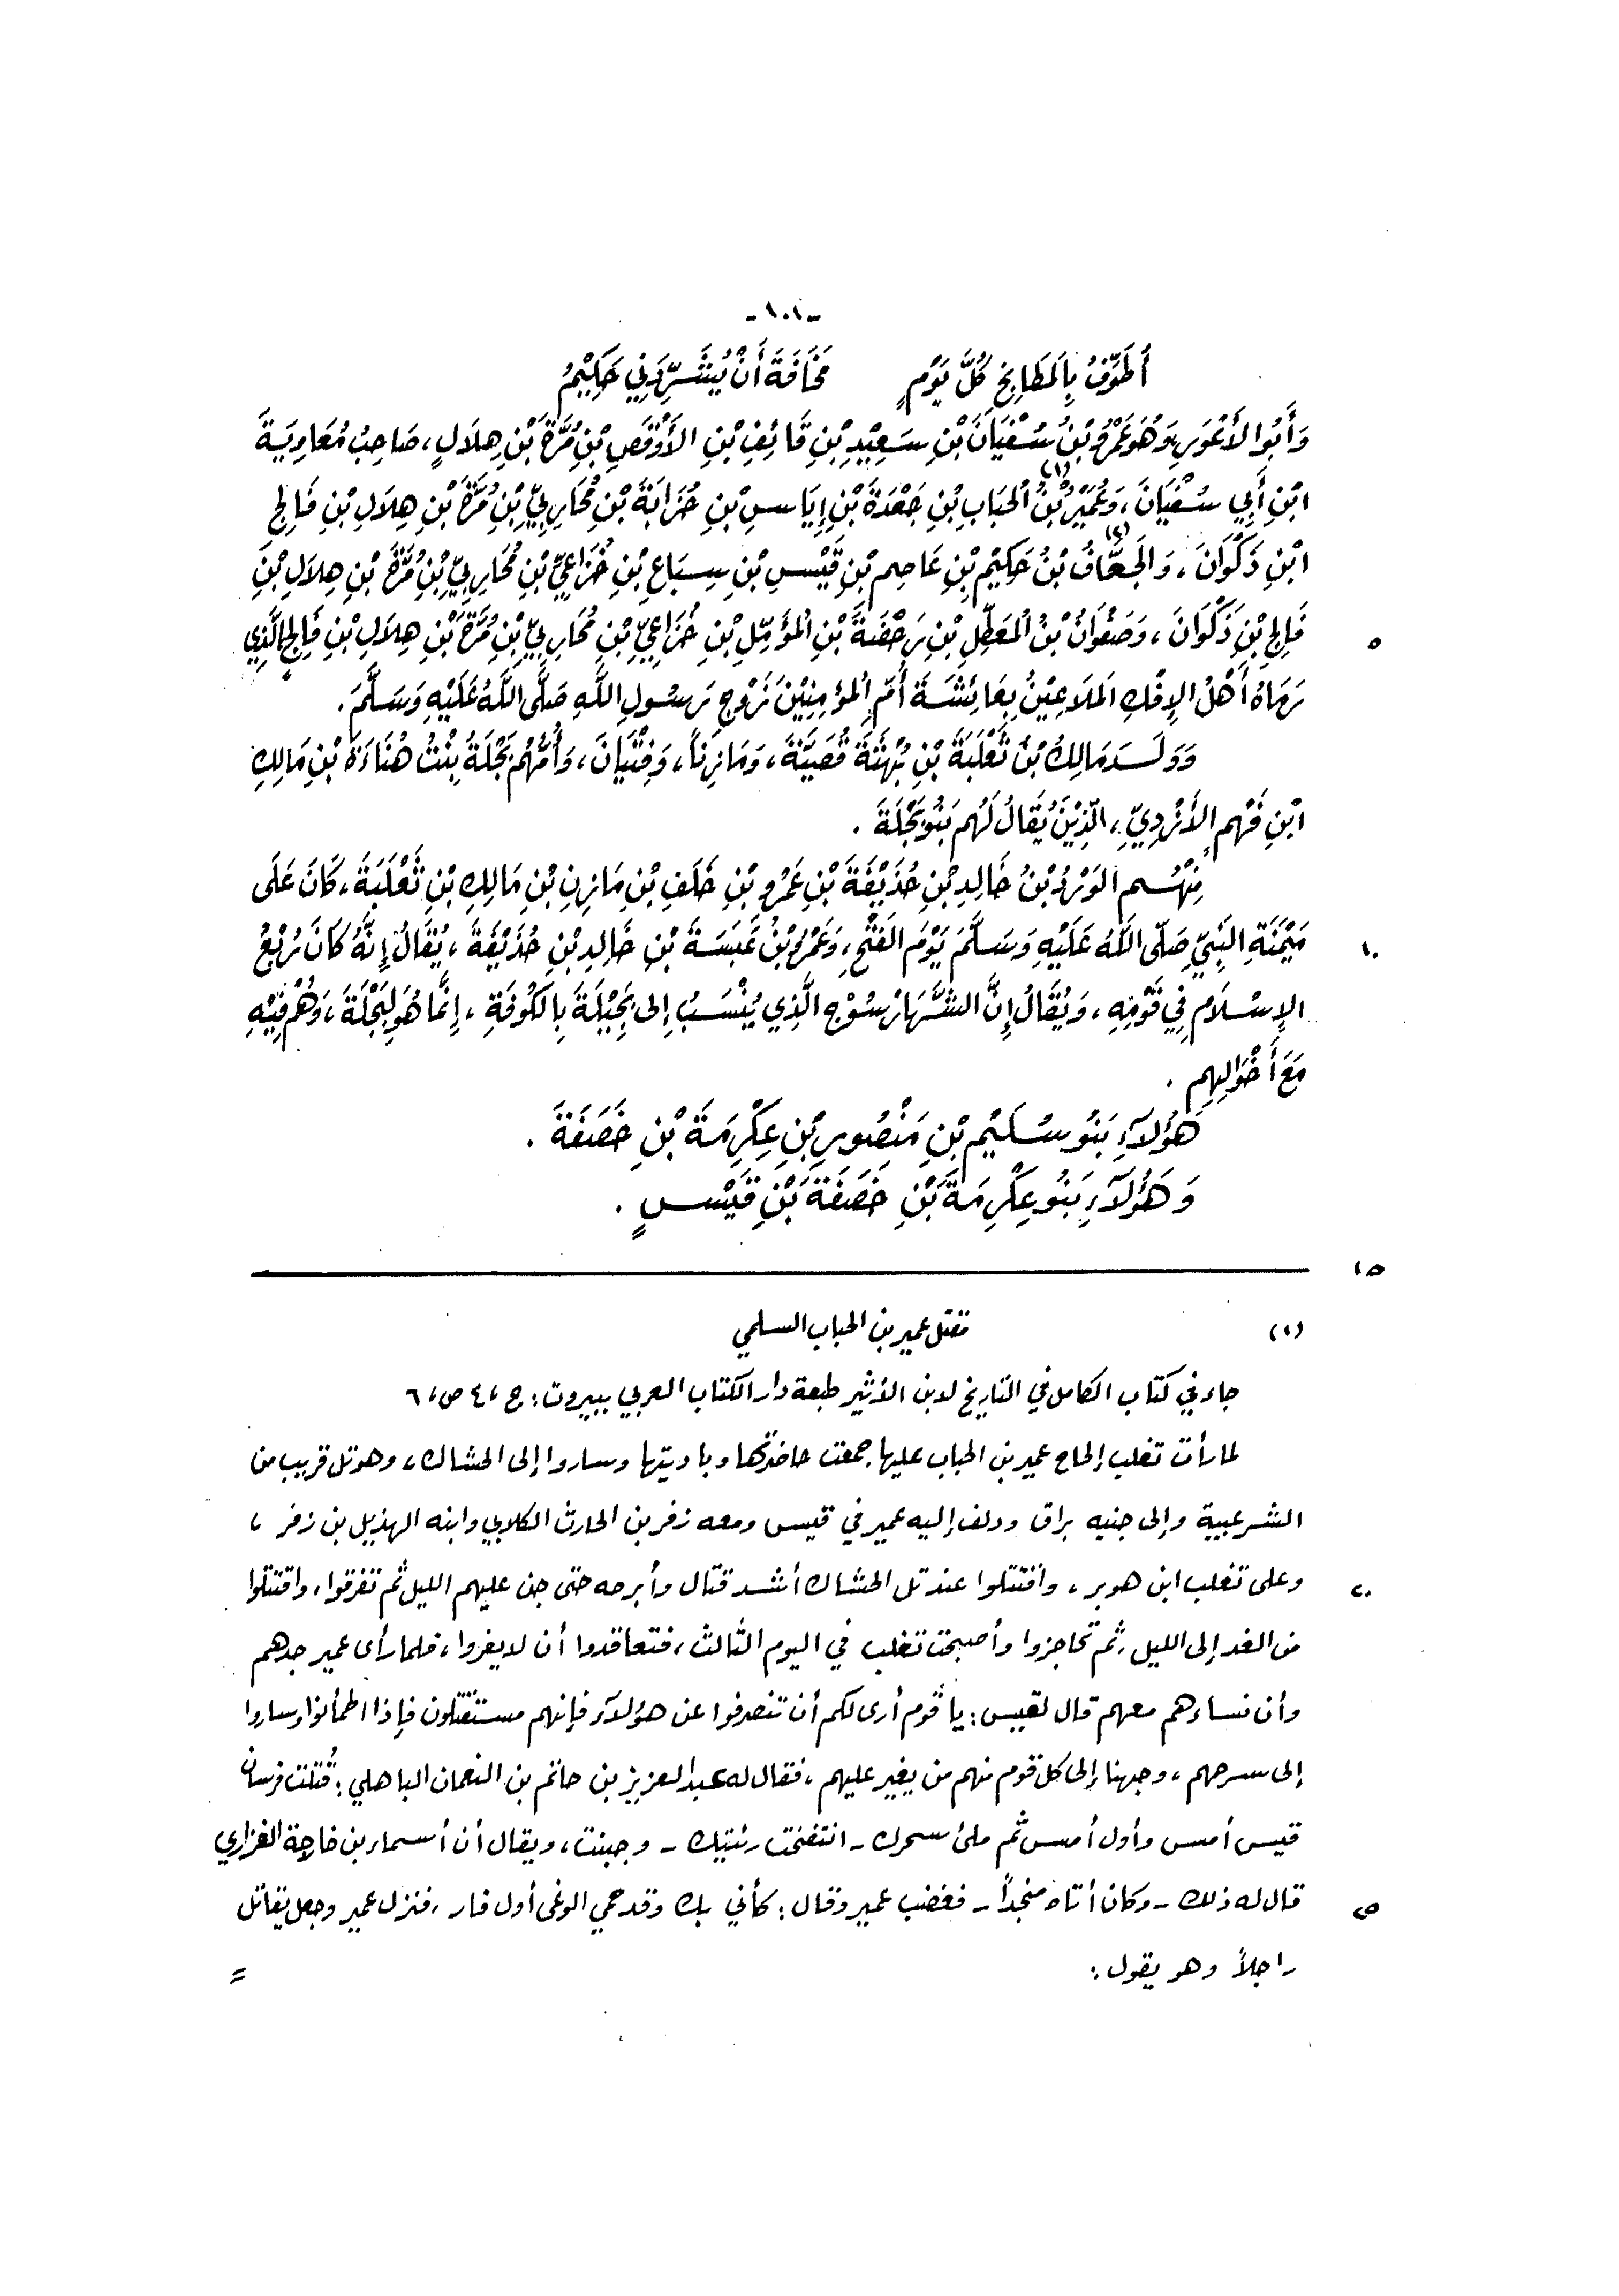 -١٠١-
أُطَوِّفُ بِالمَطَابِخِ كُلَّ يَوْمٍ مَخَافَةَ أَنْ يُشَرِّدَنِي حَكِيْمُ
وَأَبُو الأَعْوَرِ وَهُوَ عَمْرُو بْنُ سُفْيَانَ بْنِ سَعِيْدِ بْنِ قَائِفِ بْنِ الأَوْقَصِ بْنِ مُرَّةَ بْنِ هِلَالٍ، صَاحِبُ مُعَاوِيَةَ
ابْنِ أَبِي سُفْيَانَ، وَعُمَيْرُ(١) بْنُ الحُبَابِ بْنِ جَعْدَةَ بْنِ إِيَاسِ بْنِ حُزَابَةَ بْنِ مُحَارِبِيِّ بْنِ مُرَّةَ بْنِ هِلَالِ بْنِ فَالِجِ
ابْنِ ذَكْوَانَ، وَالجَحَّافُ(٢) بْنُ حَكِيْمِ بْنِ عَاصِمِ بْنِ قَيْسِ بْنِ سِبَاعِ بْنِ خُزَاعِيِّ بْنِ مُحَارِبِيِّ بْنِ مُرَّةَ بْنِ هِلَالِ بْنِ
فَالِجِ بْنِ ذَكْوَانَ، وَصَفْوَانُ بْنُ المُعَطِّلِ بْنِ رَحْضَةَ بْنِ المُؤَمِّلِ بْنِ خُزَاعِيِّ بْنِ مُحَارِبِيِّ بْنِ مُرَّةَ بْنِ هِلَالِ بْنِ فَالِجٍ الَّذِي
٥
رَمَاهُ أَهْلُ الإِفْكِ المَلَاعِيْنُ بِعَائِشَةَ أُمِّ المُؤمِنِيْنَ زَوْجِ رَسُولِ اللَّهِ صَلَّى اللَّهُ عَلَيْهِ وَسَلَّمَ.
وَوَلَدَ مَالِكُ بْنُ ثَعْلَبَةَ بْنِ بُهْثَةَ قُصَيَّةَ، وَمَازِناً، وَفِتْيَانَ، وَأُمُّهُم بَجْلَةُ بِنْتُ هُنَاءَةَ بْنِ مَالِكِ
ابْنِ فَهْمٍ الأَزْدِيِّ، الَّذِيْنَ يُقَالُ لَهُم بَنُو بَجْلَةَ.
مِنْهُم الوَرْدُ بْنُ خَالِدِ بْنِ حُذَيْفَةَ بْنِ عَمْرِو بْنِ خَلَفِ بْنِ مَازِنِ بْنِ مَالِكِ بْنِ ثَعْلَبَةَ، كَانَ عَلَى
مَيْمَنَةِ النَّبِيِّ صَلَّى اللَّهُ عَلَيْهِ وَسَلَّمَ يَوْمَ الفَتْحِ، وَعَمْرُو بْنُ عَبَسَةَ بْنِ خَالِدِ بْنِ حُذَيْفَةَ، يُقَالُ إِنَّهُ كَانَ رُبْعُ
١٠
الإِسْلَامِ فِي قَوْمِهِ، وَيُقَالُ إِنَّ الشَّهَارْسُوْجِ الَّذِي يُنْسَبُ إِلى بَجِيْلَةَ بِالكُوفَةِ، إِنَّمَا هُوَ لِبَجْلَةَ، وَهُمْ فِيْهِ
مَعَ أَخْوَالِهِم.
هَؤُلاَءِ بَنُو سُلَيْمِ بْنِ مَنْصُورِ بْنِ عِكْرِمَةَ بْنِ خَصَفَةَ.
وَهَؤُلاَءِ بَنُو عِكْرِمَةَ بْنِ خَصَفَةَ بْنِ قَيْسٍ.
١٥
(١) مقتل عمير بن الحباب السلمي
جاء في كتاب الكامل في التاريخ لابن الأثير طبعة دار الكتاب العربي ببيروت: ج ٤، ص ٦،
لما رأت تغلب إلحاح عمير بن الحباب عليها جمعت حاضرتها وباديتها وساروا إلى الحشاك، وهو تل قريب من
الشرعبية وإلى جنبه براق ودلف إليه عمير في قيس ومعه زفر بن الحارث الكلابي وابنه الهذيل بن زفر،
وعلى تغلب ابن هوبر، واقتتلوا عند تل الحشاك أشد قتال وأبرحه حتى جن عليهم الليل ثم تفرقوا، واقتتلوا
٢٠
من الغد إلى الليل، ثم تحاجزوا وأصبحت تغلب في اليوم الثالث، فتعاقدوا أن لا يفروا، فلما رأى عمير جدهم
وأن نساءهم معهم قال لقيس: يا قوم أرى لكم أن تنصرفوا عن هؤلاء فإنهم مستقتلون فإذا اطمأنوا وساروا
إلى سرحهم، وجهنا إلى كل قوم منهم من يغير عليهم، فقال له عبد العزيز بن حاتم بن النعمان الباهلي: قُتلت فرسان
قيس أمس وأول أمس ثم ملئ سحرك - انتفخت رئتيك - وجبنت، ويقال أن أسماء بن خارجة الفزاري
قال له ذلك - وكان أتاه منجداً - فغضب عمير وقال: كأني بك وقد حمي الوغى أول فار، فنزل عمير وجعل يقاتل
٢٥
راجلاً وهو يقول:
=